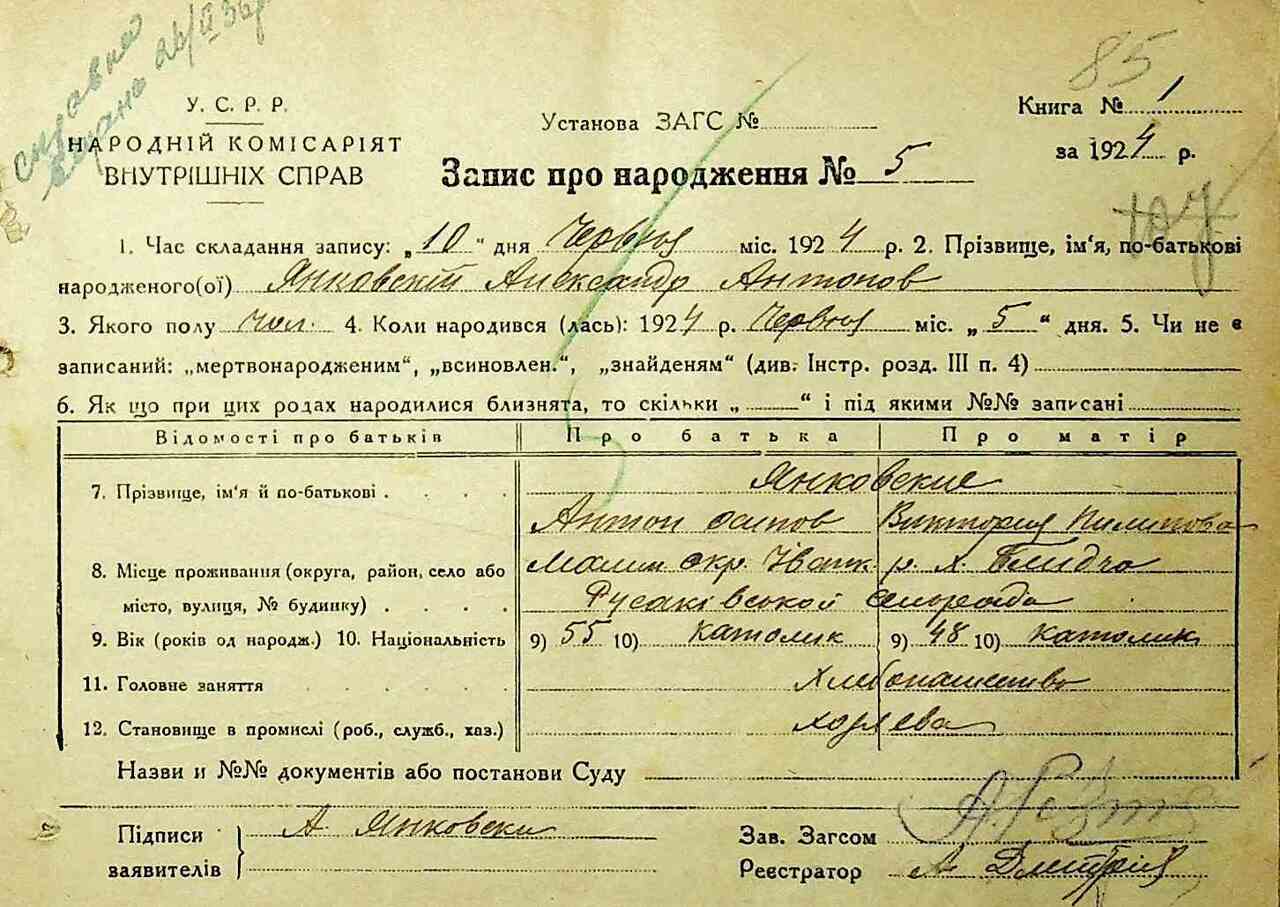 справка
26/II 36р
85
У. С. Р. Р.
НАРОДНІЙ КОМІСАРІЯТ
ВНУТРІШНІХ СПРАВ
Установа ЗАГС №
Книга № 1
за 1924 р.
Запис про народження № 5
1. Час складання запису: „10“ дня Червня міс. 1924 р. 2. Прізвище, ім‘я, по-батькові
народженого(ої) Янковскій Александр Антонов
3. Якого полу чол. 4. Коли народився (лась): 1924 р. Червня міс. „5“ дня. 5. Чи не є
записаний: „мертвонародженим“, „всиновлен.“, „знайденям“ (див. Інстр. розд. III п. 4)
6. Як що при цих родах народилися близнята, то скільки „ “ і під якими №№ записані
Відомості про батьків Про батька Про матір
7. Прізвище, ім‘я й по-батькові . . . . Янковские
Антон Осипов Виктория Пилипова
8. Місце проживання (округа, район, село або Малин окр. Іванк. р. Блидча
місто, вулиця, № будинку) . . . . Русаківської сельрада
9. Вік (років од народж.) 10. Національність 9) 55 10) католик 9) 48 10) католик
11. Головне заняття . . . . . Хлебопашество
12. Становище в промислі (роб., служб., хаз.) хозяева
Назви и №№ документів або постанови Суду
Підписи А Янковски
заявителів
Зав. Загсом
Реєстратор А.